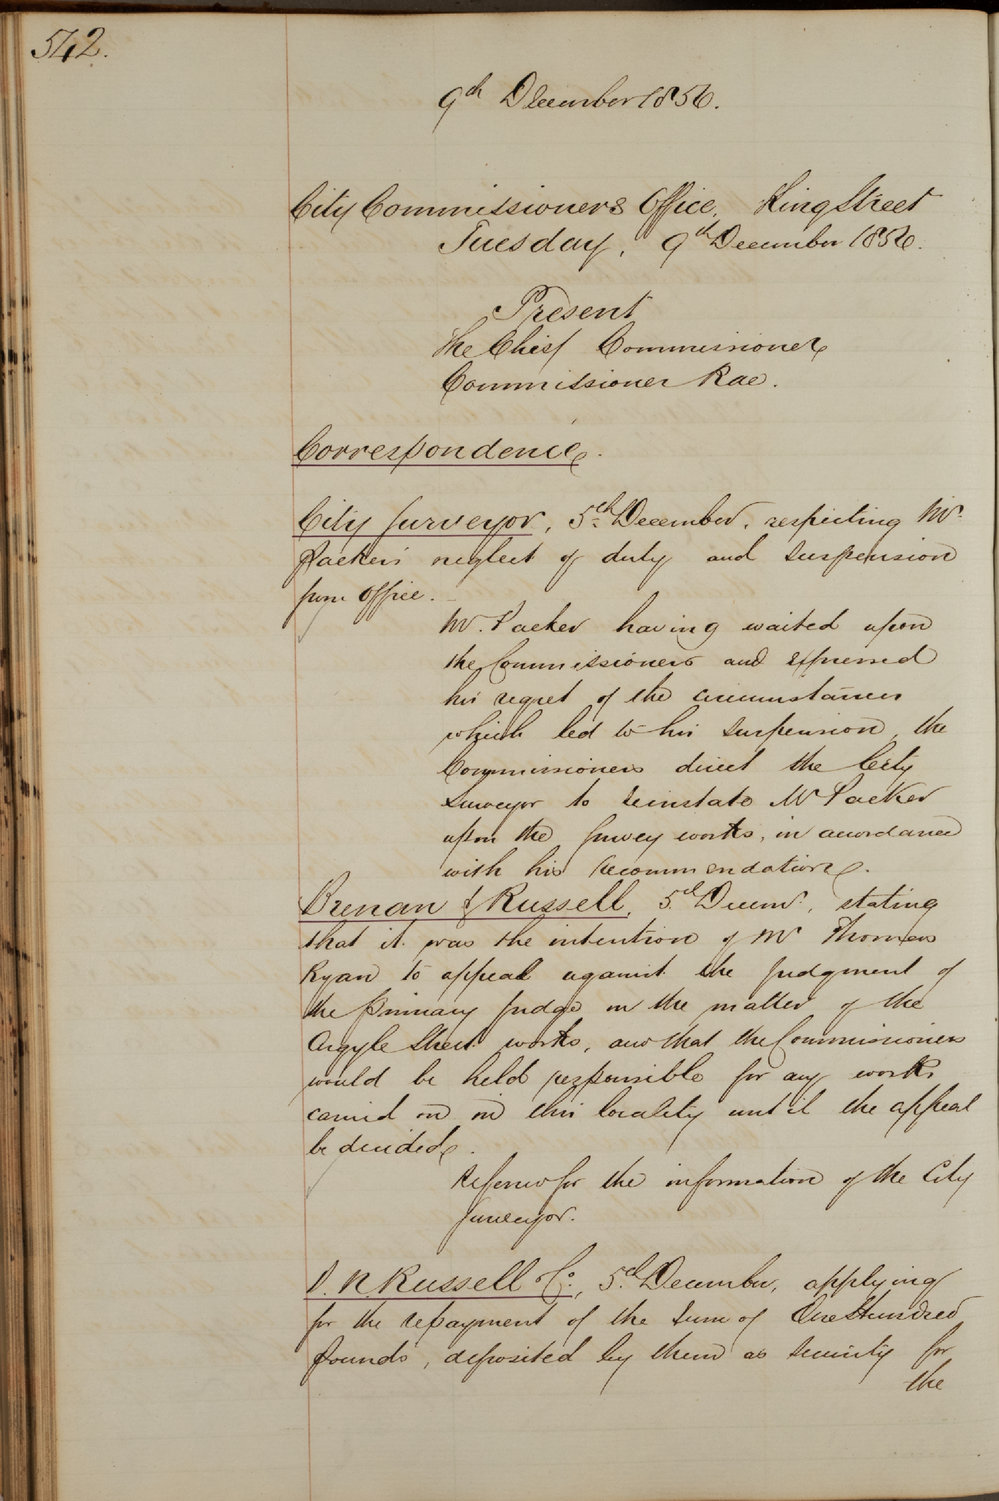 542.
9th December 1856.
City Commissioners Office, King Street
Tuesday, 9th December 1856.
Present
The Chief Commissioner
Commissioner Rae.
Correspondence.
City Surveyor, 5th December, respecting Mr.
Packer's neglect of duty and suspension
from Office.
Mr. Packer having waited upon
the Commissioners and expressed
his regret of the circumstances
which led to his suspension, the
Commissioners direct the City
Surveyor to reinstate Mr Packer
upon the Survey works, in accordance
with his recommendation.
Brenan & Russell, 5th Decemr, stating
that it was the intention of Mr Thomas
Ryan to appeal against the judgment of
the primary judge in the matter of the
Argyle Street works, and that the Commissioners
would be held responsible for any works
carried on in this locality until the appeal
be decided.
Referred for the information of the City
Surveyor.
P. N. Russell & Co., 5th December, applying
for the repayment of the sum of One Hundred
pounds, deposited by them as security for
the